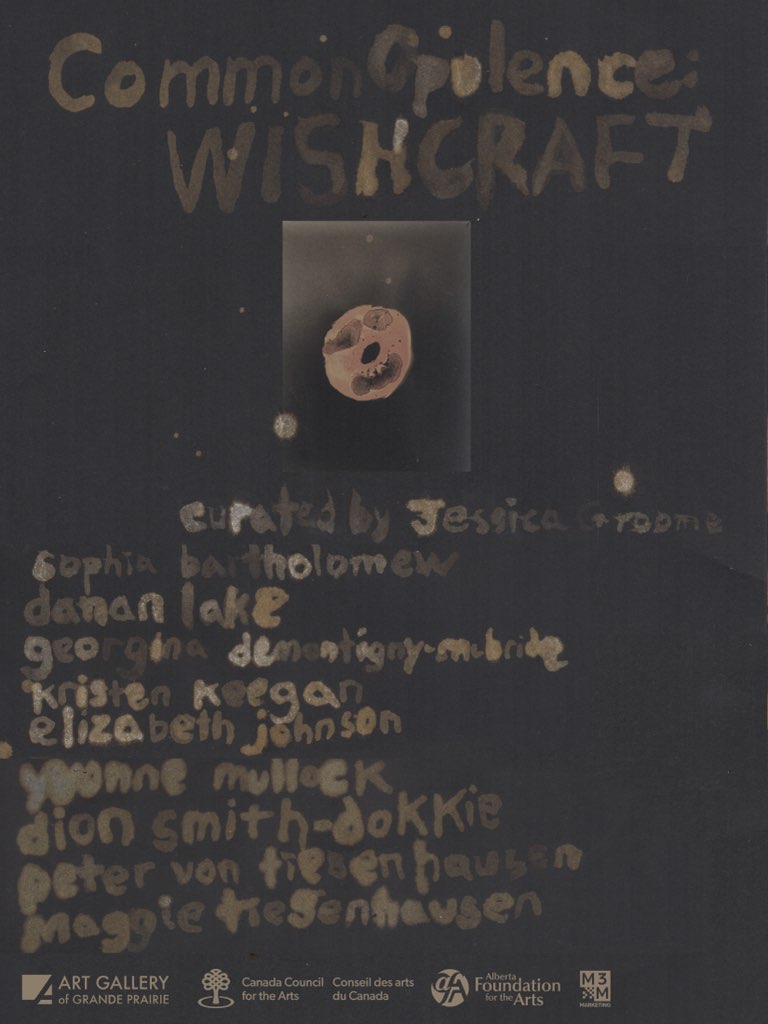 Common Opulence:
WISHCRAFT
curated by Jessica Groome
sophia bartholomew
danan lake
georgina demontigny-mcbride
kristen keegan
elizabeth johnson
yvonne mullock
dion smith-dokkie
peter von tiesenhausen
maggie tiesenhausen
ART GALLERY
of GRANDE PRAIRIE
Canada Council
for the Arts
Conseil des arts
du Canada
afA
Alberta
Foundation
for the Arts
M3
M
MARKETING